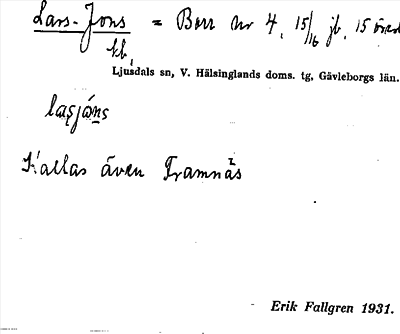 Lars-Jons = Berr nr 4, 15/16 jb, 15 öresl
kb,
Ljusdals sn, V. Hälsinglands doms. tg, Gävleborgs län.
lasjóns
Kallas även Framnäs
Erik Fallgren 1931.